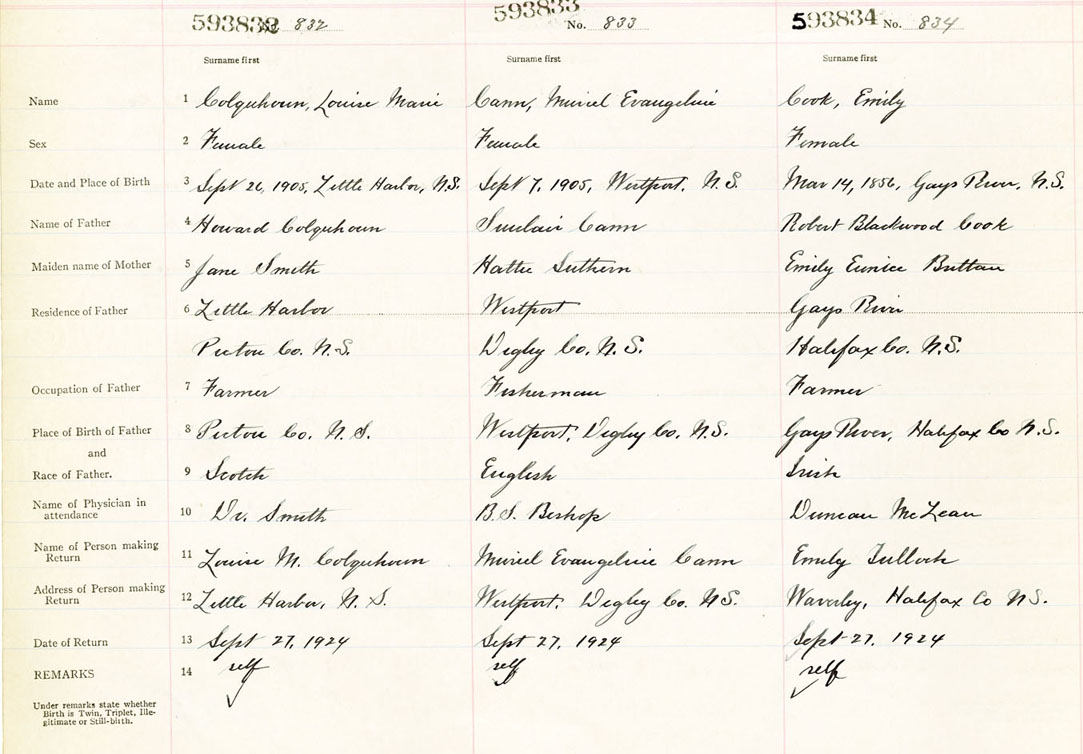 593832 No. 832 593833 No. 833 593834 No. 834
Surname first Surname first Surname first
Name 1 Colquhoun, Louise Marie Cann, Muriel Evangeline Cook, Emily
Sex 2 Female Female Female
Date and Place of Birth 3 Sept 26, 1905, Little Harbor, N.S. Sept 7, 1905, Westport, N.S. Mar 14, 1856, Gays River, N.S.
Name of Father 4 Howard Colquhoun Sinclair Cann Robert Blackwood Cook
Maiden name of Mother 5 Jane Smith Hattie Suthern Emily Eunice
Residence of Father 6 Little Harbor Westport Gays River
Pictou Co. N.S. Digby Co. N.S. Halifax Co. N.S.
Occupation of Father 7 Farmer Fisherman Farmer
Place of Birth of Father 8 Pictou Co. N.S. Westport, Digby Co. N.S. Gays River, Halifax Co N.S.
and
Race of Father. 9 Scotch English Irish
Name of Physician in
attendance 10 Dr. Smith B.S. Bishop Duncan McLean
Name of Person making
Return 11 Louise M. Colquhoun Muriel Evangeline Cann Emily Tulloch
Address of Person making
Return 12 Little Harbor, N.S. Westport, Digby Co. N.S. Waverley, Halifax Co N.S.
Date of Return 13 Sept 27, 1924 Sept 27, 1924 Sept 27, 1924
REMARKS 14 self self self
Under remarks state whether
Birth is Twin, Triplet, Ille-
gitimate or Still-birth.